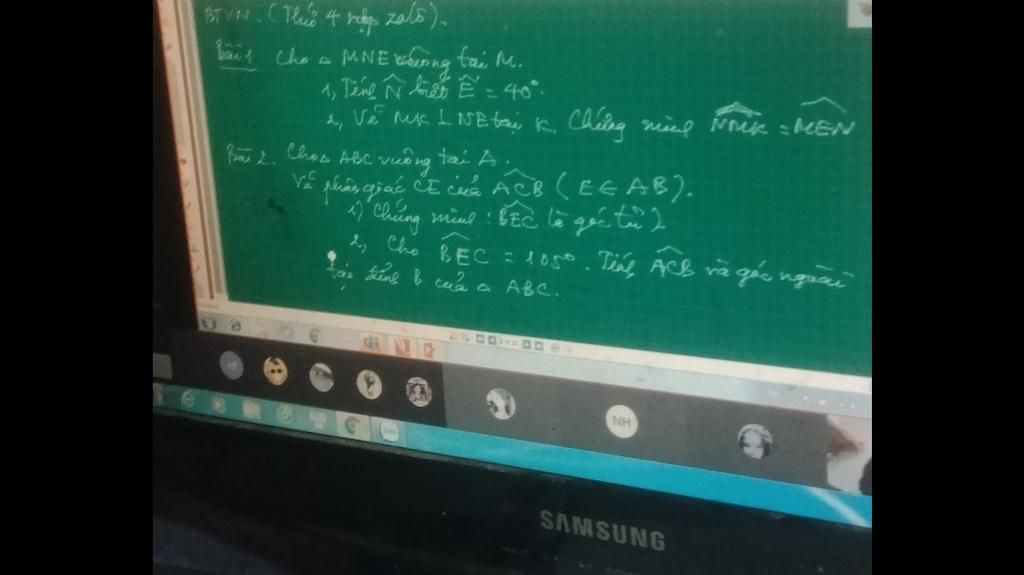 BTVN. (Thứ 4 nộp zalô).
Bài 1 Cho △ MNE vuông tại M.
1, Tính N̂ biết Ê = 40°.
2, Vẽ MK ⊥ NE tại K. Chứng minh NMK = MEN
Bài 2. Cho △ ABC vuông tại A.
Vẽ phân giác CE của ACB (E ∈ AB).
1) Chứng minh : BEC là góc tù
2, Cho BEC = 105°. Tính ACB và góc ngoài
tại đỉnh B của △ ABC.
NH
SAMSUNG